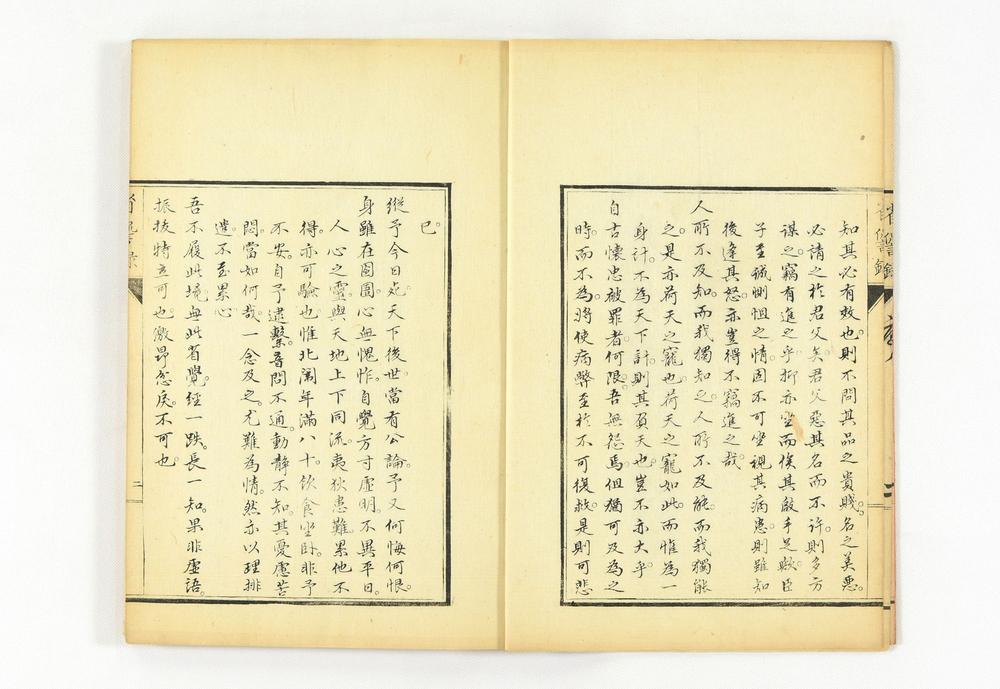 省諐錄
知其必有效也。則不問其品之貴賤。名之美惡。
必請之於君父矣。君父惡其名而不許。則多方
謀之。竊有進之乎。抑亦坐而俟其啟手足歟。臣
子至誠惻怛之情。固不可坐視其病患。則雖知
後逢其怒。亦豈得不竊進之哉。
人所不及知。而我獨知之。人所不及能。而我獨能
之。是亦荷天之寵也。荷天之寵如此。而惟為一
身計。不為天下計。則其負天也。豈不亦大乎
自古懷忠被罪者何限。吾無怨焉。但猶可及為之
時。而不為。將使病弊至於不可復救。是則可悲
已。
縱予今日死。天下後世。當有公論。予又何悔何恨。
身雖在囹圄。心無愧怍。自覺方寸虛明。不異平日。
人心之靈。與天地上下同流。夷狄患難。累他不
得。亦可驗也。惟北闈年滿八十。飲食坐臥。非予
不安。自予逮繫。音問不通。動靜不知。其憂慮苦
悶。當如何哉。一念及之。尤難為情。然亦以理排
遣。不至累心
吾不履此境。無此省覺。經一跌。長一知。果非虛語。
振拔特立可也。激昂忿戾。不可也。
二